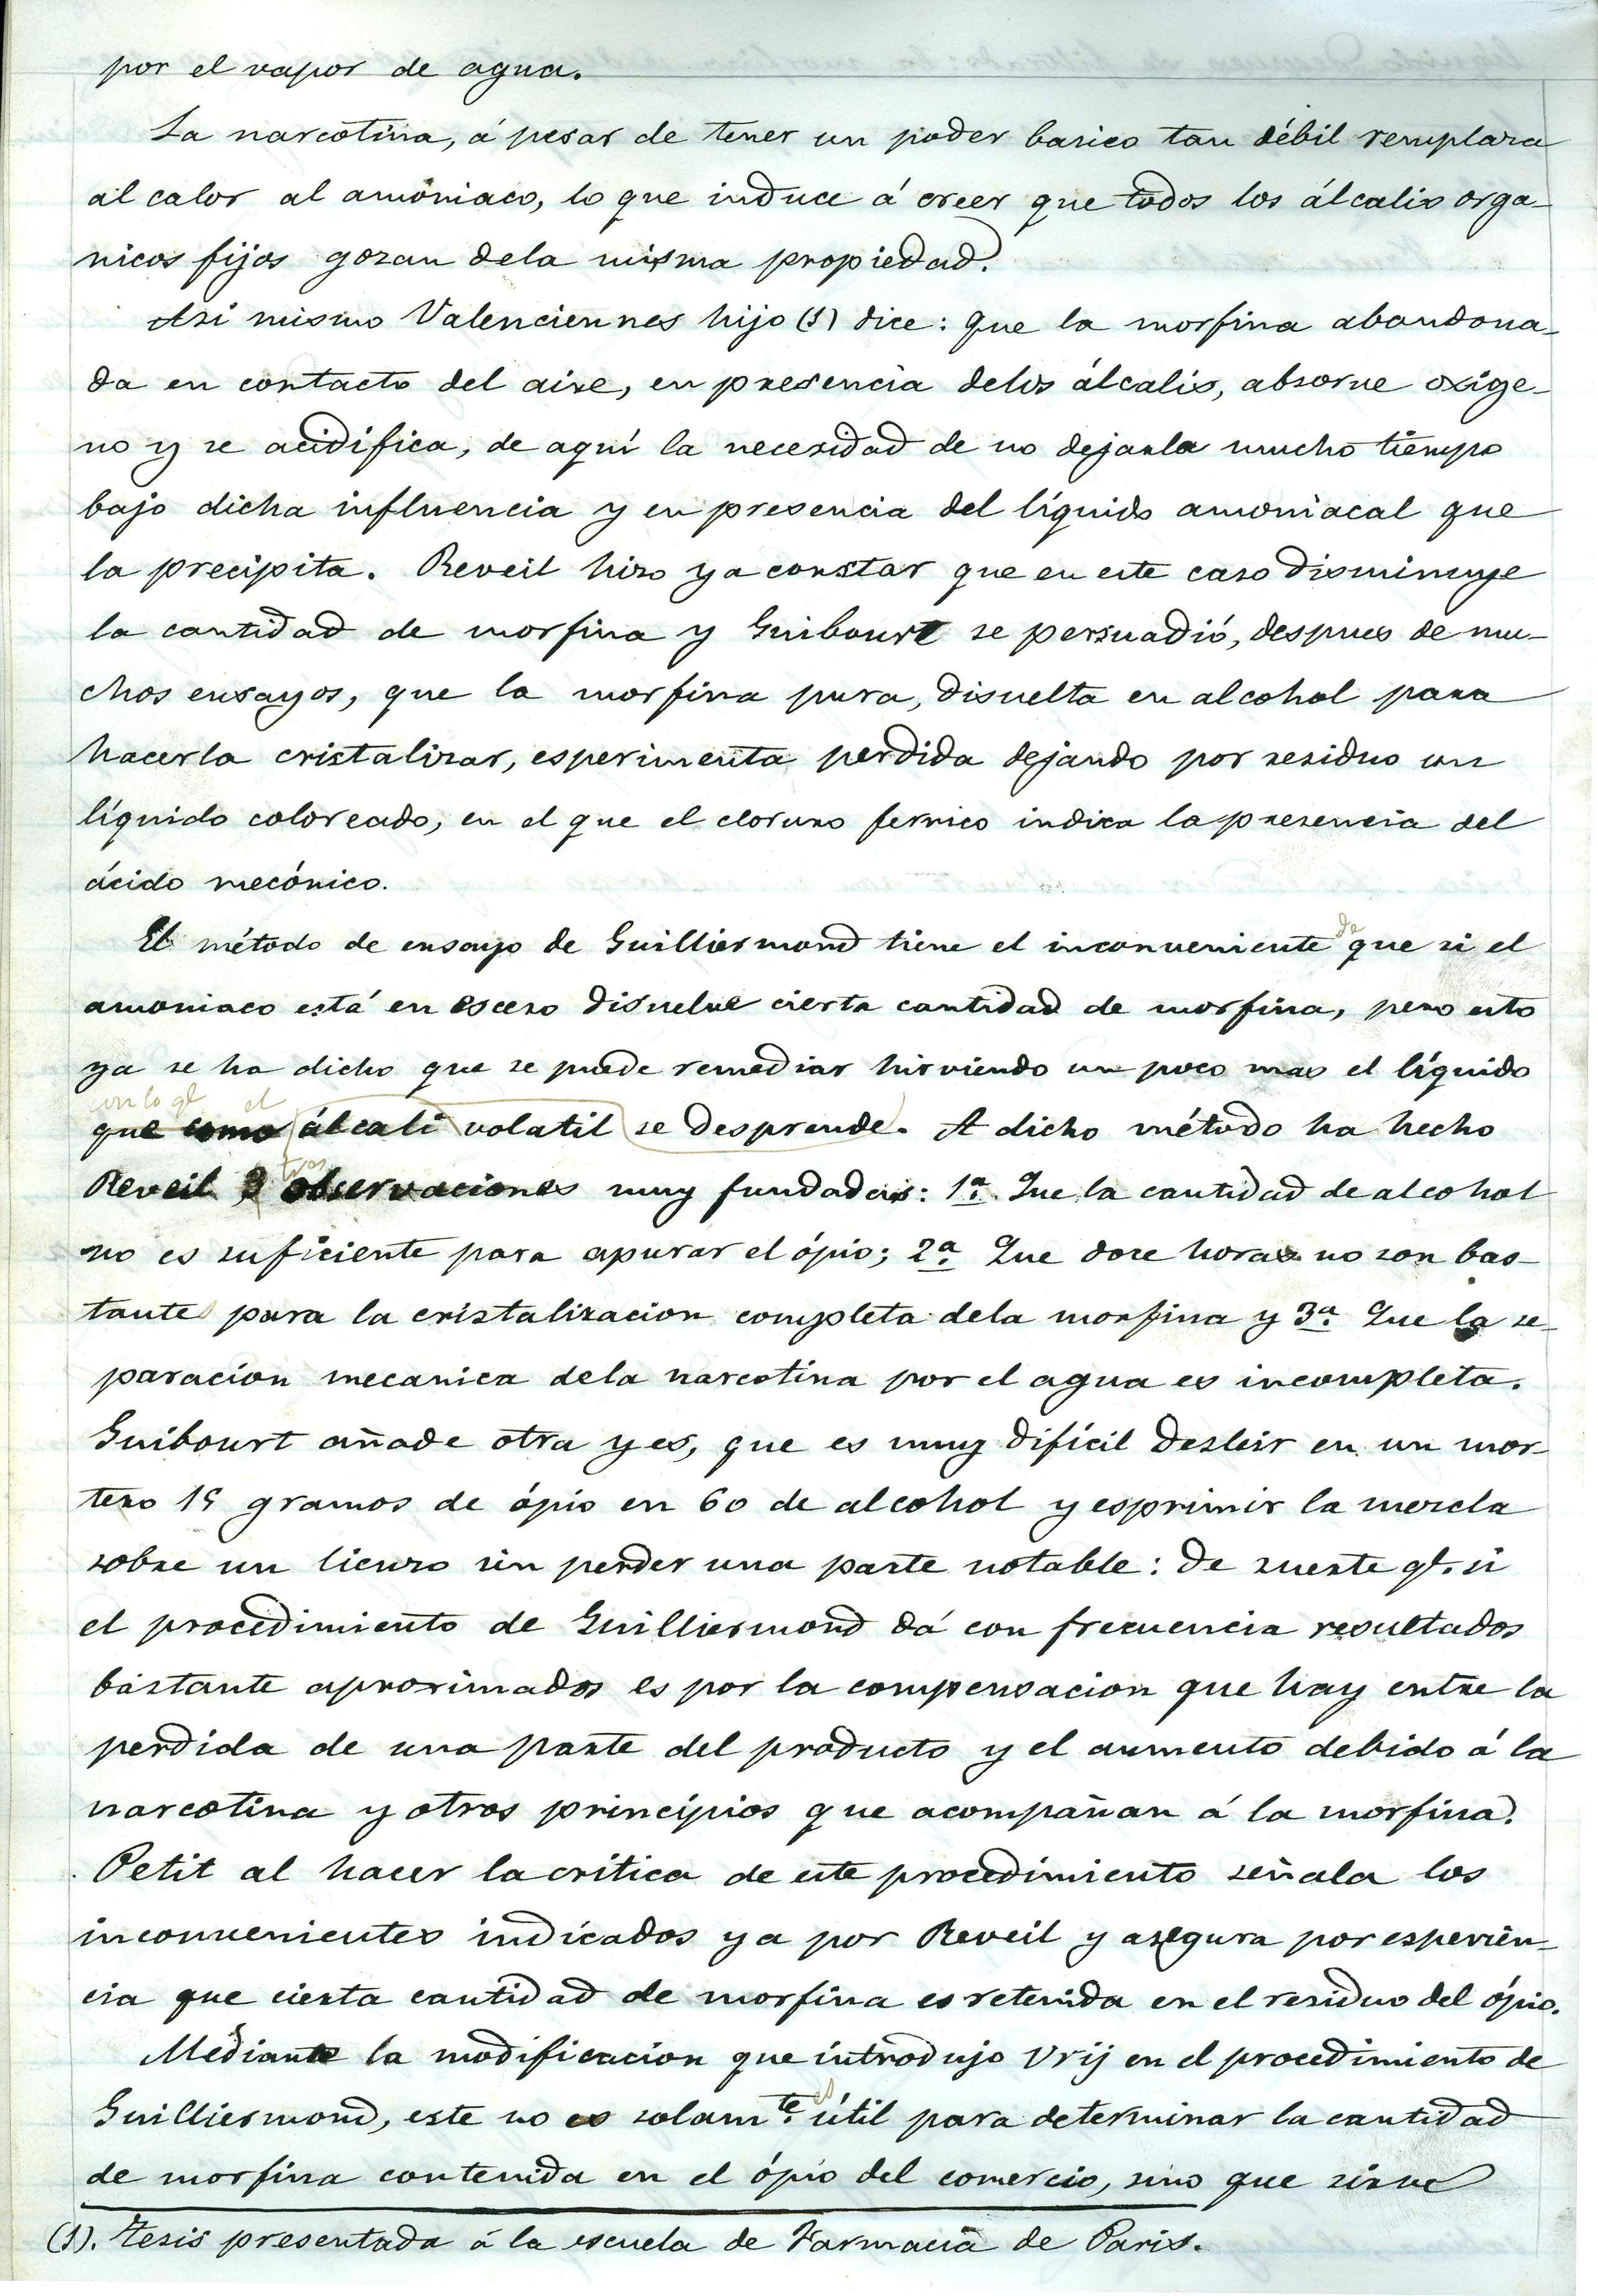 por el vapor de agua.
La narcotina, á pesar de tener un poder basico tan débil remplaza
al calor al amóniaco, lo que induce á creer que todos los álcalis orga-
nicos fijos gozan dela misma propiedad.
Asi mismo Valenciennes hijo (1) dice: que la morfina abandona-
da en contacto del aire, en presencia delos álcalis, absorve oxige-
no y se acidifica, de aquí la necesidad de no dejarla mucho tiempo
bajo dicha influencia y en presencia del líquido amoniacal que
la precipita. Reveil hizo ya constar que en este caso disminuye
la cantidad de morfina y Guibourt se persuadió, despues de mu-
chos ensayos, que la morfina pura, disuelta en alcohol para
hacerla cristalizar, esperimenta perdida dejando por residuo un
líquido coloreado, en el que el cloruro ferrico indica la presencia del
ácido mecónico.
El método de ensayo de Guilliermond tiene el inconveniente de que si el
amoniaco está en esceso disuelve cierta cantidad de morfina, pero esto
ya se ha dicho que se puede remediar hirviendo un poco mas el líquido
con lo qe el
que como álcali volatil se desprende. A dicho método ha hecho
Reveil 3 tres observaciones muy fundadas: 1ª. Que la cantidad de alcohol
no es suficiente para apurar el ópio; 2ª. Que doce horas no son bas-
tantes para la cristalizacion completa dela morfina y 3ª. Que la se-
paracion mecanica dela narcotina por el agua es incompleta.
Guibourt añade otra y es, que es muy difícil desleir en un mor-
tero 15 gramos de ópio en 60 de alcohol y esprimir la mezcla
sobre un lienzo sin perder una parte notable: de suerte qe. si
el procedimiento de Guilliermond dá con frecuencia resultados
bastante aproximados es por la compensacion que hay entre la
perdida de una parte del producto y el aumento debido á la
narcotina y otros principios que acompañan á la morfina.
Petit al hacer la critica de este procedimiento señala los
inconvenientes indicados ya por Reveil y asegura por esperien-
cia que cierta cantidad de morfina es retenida en el residuo del ópio.
Mediante la modificacion que introdujo Vrij en el procedimiento de
Guilliermond, este no es solamte. es útil para determinar la cantidad
de morfina contenida en el ópio del comercio, sino que sirve
(1). Tesis presentada á la escuela de Farmacia de Paris.